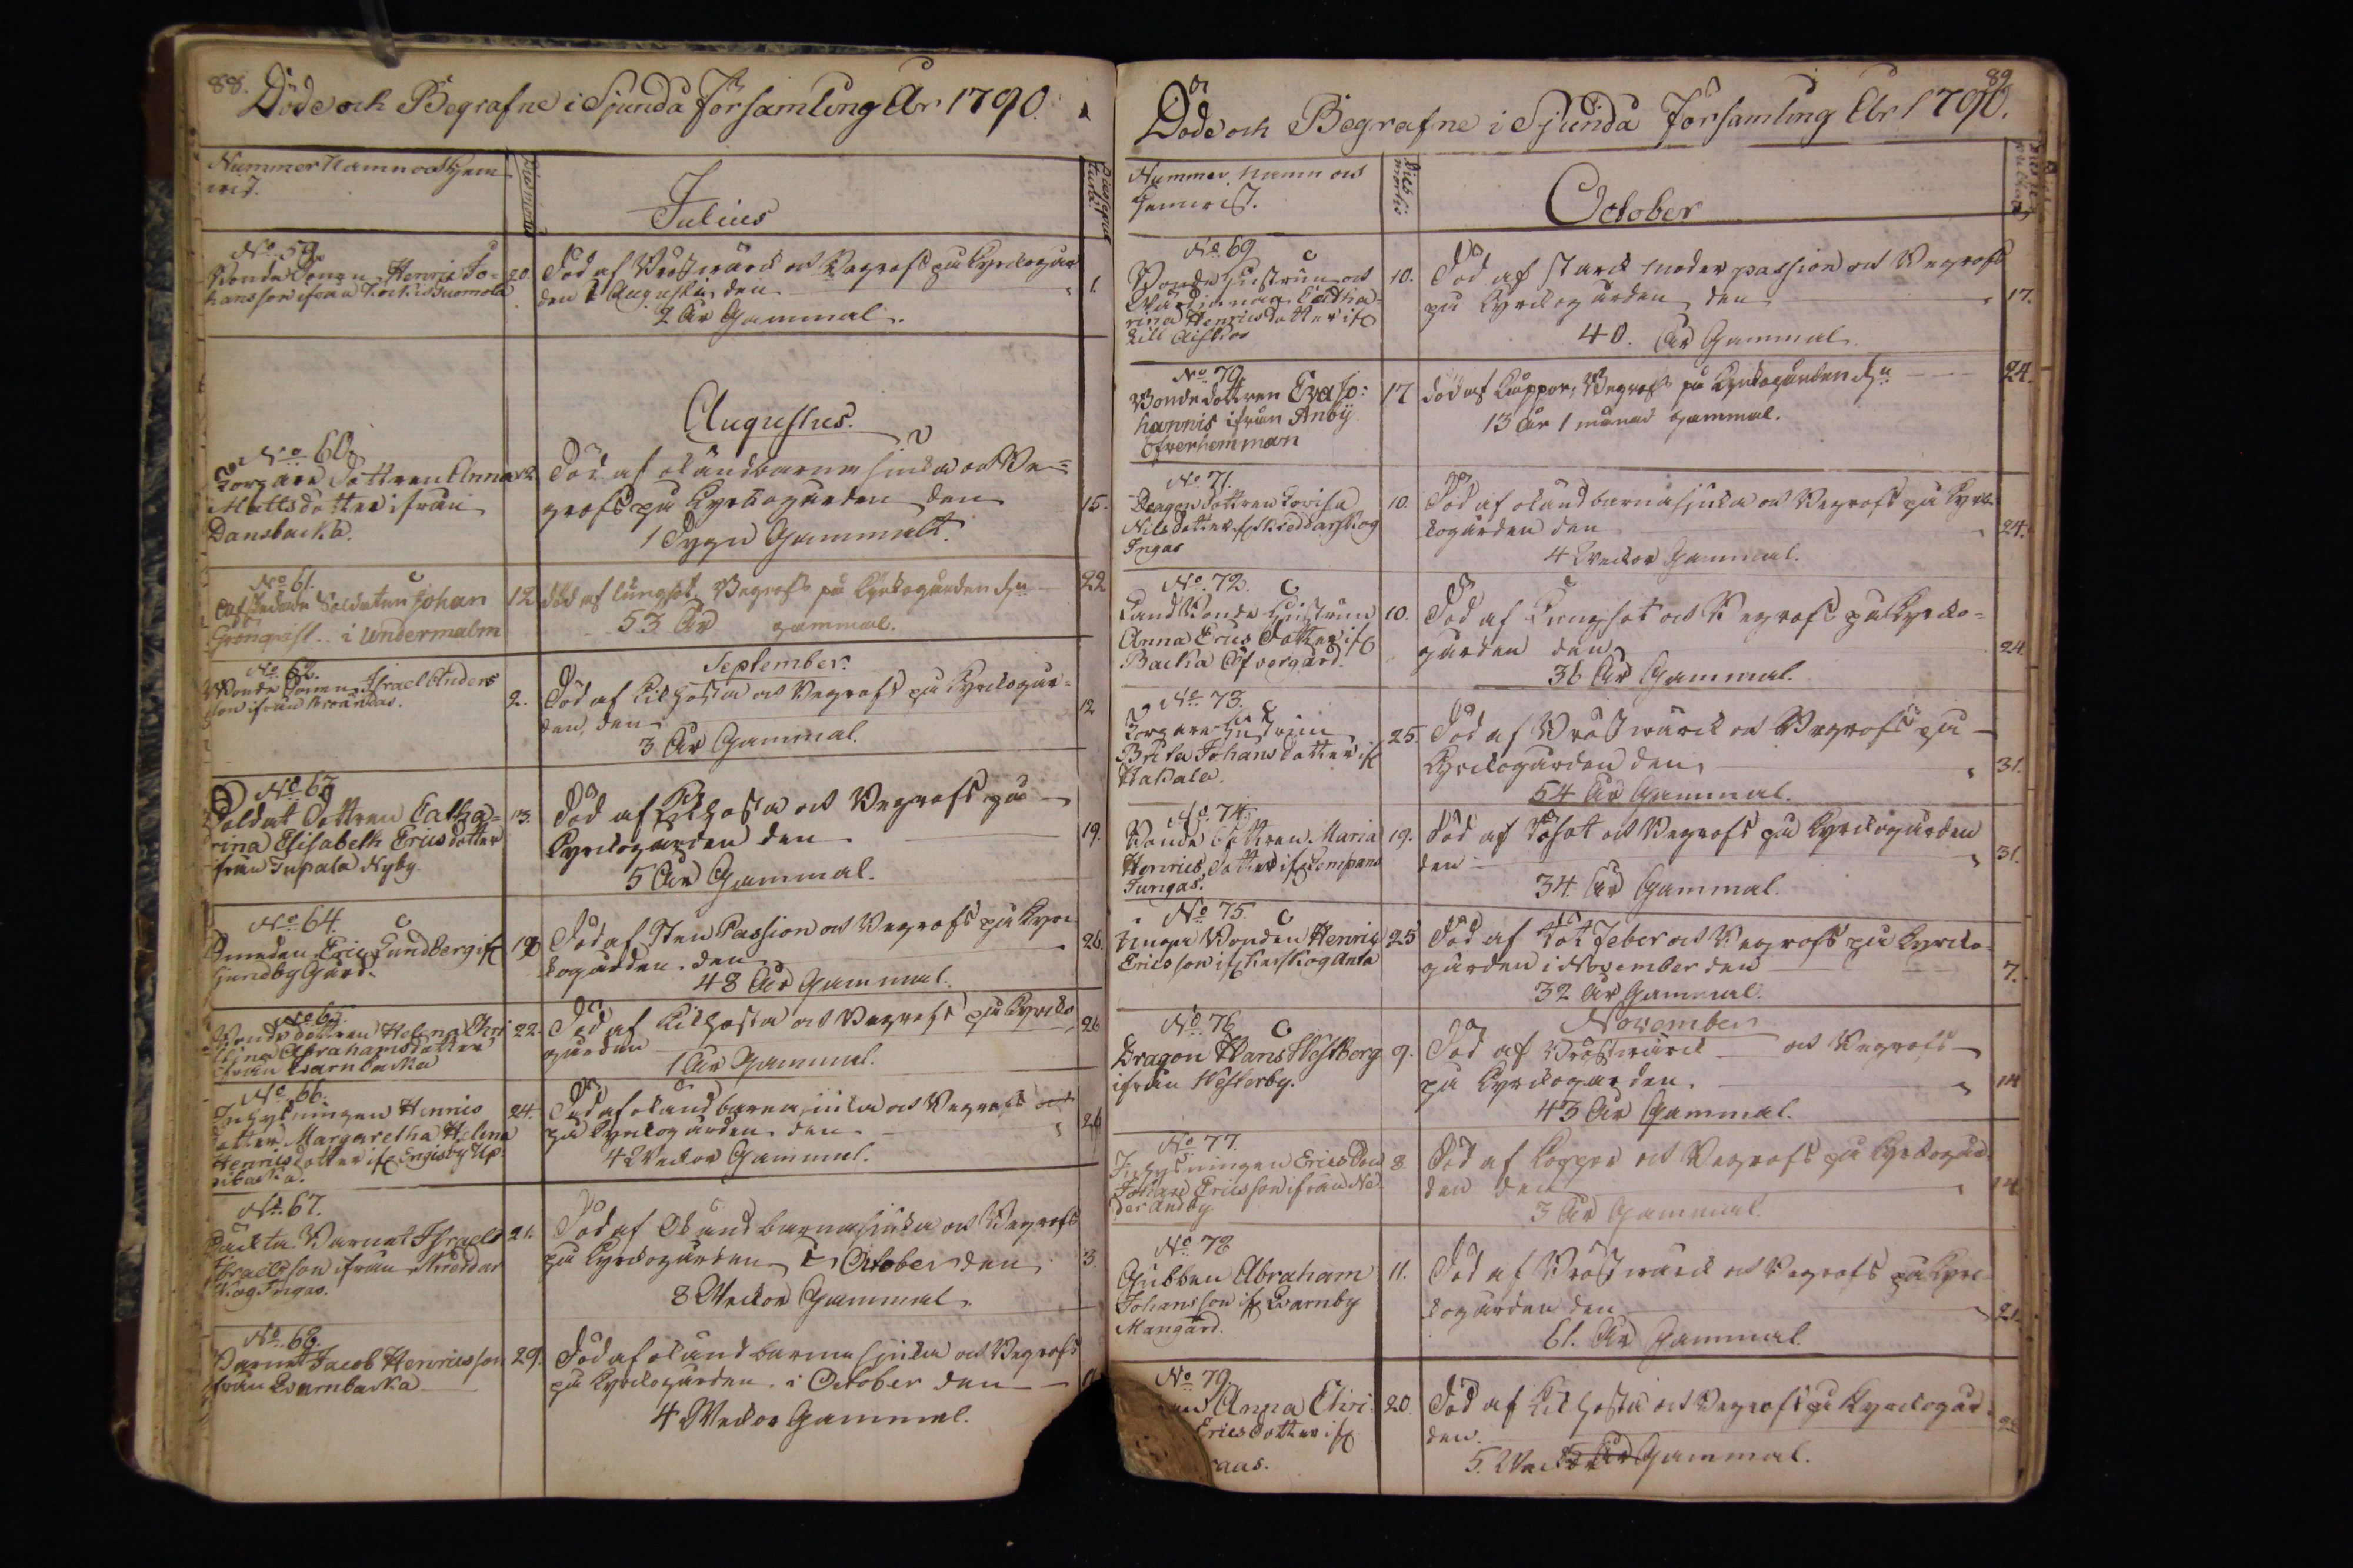 88.
Döde och Begrafne i Sjundå Församling År 1790.
Nummer Namn och Hem
wist.
Julius
No. 59.
Bonde Sonen Henric Jo-
hansson ifrån
20.
Död af Bröstwärck och Begrofs på Kyrckogår
den i Augusti, den
1.
2 År Gammal.
Augustus.
No. 60.
Torpare Dottren Anna
Mattsdotter ifrån
Dansbacka.
12.
Död af okänd barna siuka och Be-
grofs på Kyrckogården den
15.
1 Dygn Gammalt.
No. 61.
Afskedade Soldaten Johan
Grönqvist i Undermalm
12
död af lungsot, Begrofs på Kyrkogården d:n
22
53 År gammal.
September.
No. 62.
Bonde Sonen Israel Anders
son ifrån
2.
Död af Kikhosta och Begrofs på Kyrckogår-
den, den
12
3 År Gammal.
No. 63
Soldat Dottren Catha-
rina Elisabeth Ericsdotter
från Tupala Nyby.
13.
Död af Kikhosta och Begrofs på
Kyrckogården den
19.
5 År Gammal.
No. 64.
Smeden Eric Lundberg if
Sjundby Gård.
Död af Sten Passion och Begrofs på Kyrc
kogården. den
26.
48 År Gammal.
No. 65.
Bonde dottren Helena Chri
stina Abrahamsdotter
ifrån Qvarnbacka
22.
Död af Kikhosta och Begrofs på Kyrcko
gården
26
1 År Gammal.
No. 66.
Inhysningen Henrics
dotter Margaretha Helena
Henricsdotter if Engisby Up
pibacka.
24.
Död af okänd barna siuka och Begrofs
på Kyrckogården den
26
4 Veckor Gammal.
No. 67.
Barnet Israel
Israelsson ifrån Skreddar
skog Ingas.
21.
Död af Okänd barnasiuka och Begrofs
på Kyrckogården i October den
3.
8 Veckor Gammal.
No. 68.
Barnet Jacob Henricsson
från Qvarnbacka
29.
Död af okänd barna siuka och Begrofs
på Kyrckogården. i October den
4 Veckor Gammal.
89.
Döde och Begrafne i Sjundå Församling År 1790.
Nummer, namn och
hemvist.
Dies
mortis
October
No. 69
Bonde Hustrun och
Catha-
rina Henricsdotter if
Lill
10.
Död af starck moder passion och Begrofs
på Kyrckogården den
17.
40. År Gammal.
No. 70
Bonde dottren Eva Jo:
hannis ifrån Anby
Öfverhemman
17
död af Koppor, Begrofs på Kyrkogården d:n
24.
13 År 1 månad gammal.
No. 71.
Dragon dottren Lovisa
Nilsdotter if Skreddarskog
Ingas
10.
Död af okänd barnasjuka och Begrofs på Kyrc-
kogården den
24.
4 Veckor Gammal.
No. 72.
Land Bonde Hustrun
Anna Erics Dotter if
Backa Öfvergård.
10.
Död af Lungsot och Begrofs på Kyrcko-
gården den
24
36 År Gammal.
No. 73.
Torpare Hustrun
Brita Johansdotter if
Hakala.
25.
Död af Bröstwärck och Begrofs på
Kyrckogården den
31.
54 År Gammal.
No. 74.
Bonde Dottren Maria
Henrics Dotter if Kempans
Jungas.
19.
Död af och Begrofs på Kyrckogården
den
31.
34 År Gammal.
No. 75.
Unga Bonden Henric
Ericsson if Karskog Anta
25
Död af Röt Feber och Begrofs på Kyrcko-
gården i November den
7.
32 År Gammal.
November
No. 76
Dragon Hans Westberg
ifrån Westerby.
9.
Död af Bröstwärck och Begrofs
på Kyrckogården.
14
43 År Gammal.
No. 77.
Inhysningen Erics Son
Johan Ericsson ifrån Ne-
der Andby.
8
Död af Koppor och Begrofs på Kyrckogår-
den den
14.
3 År Gammal.
No. 78
Gubben Abraham
Johansson if Qvarnby
Mangård.
11.
Död af Bröstwärck och Begrofs på Kyrc-
kogården den
21.
61. År Gammal.
No. 79.
Anna Chri-
Ericsdotter if
raas.
20.
Död af Kikhosta och Begrofs på Kyrckogår-
den.
5. Veckor Gammal.